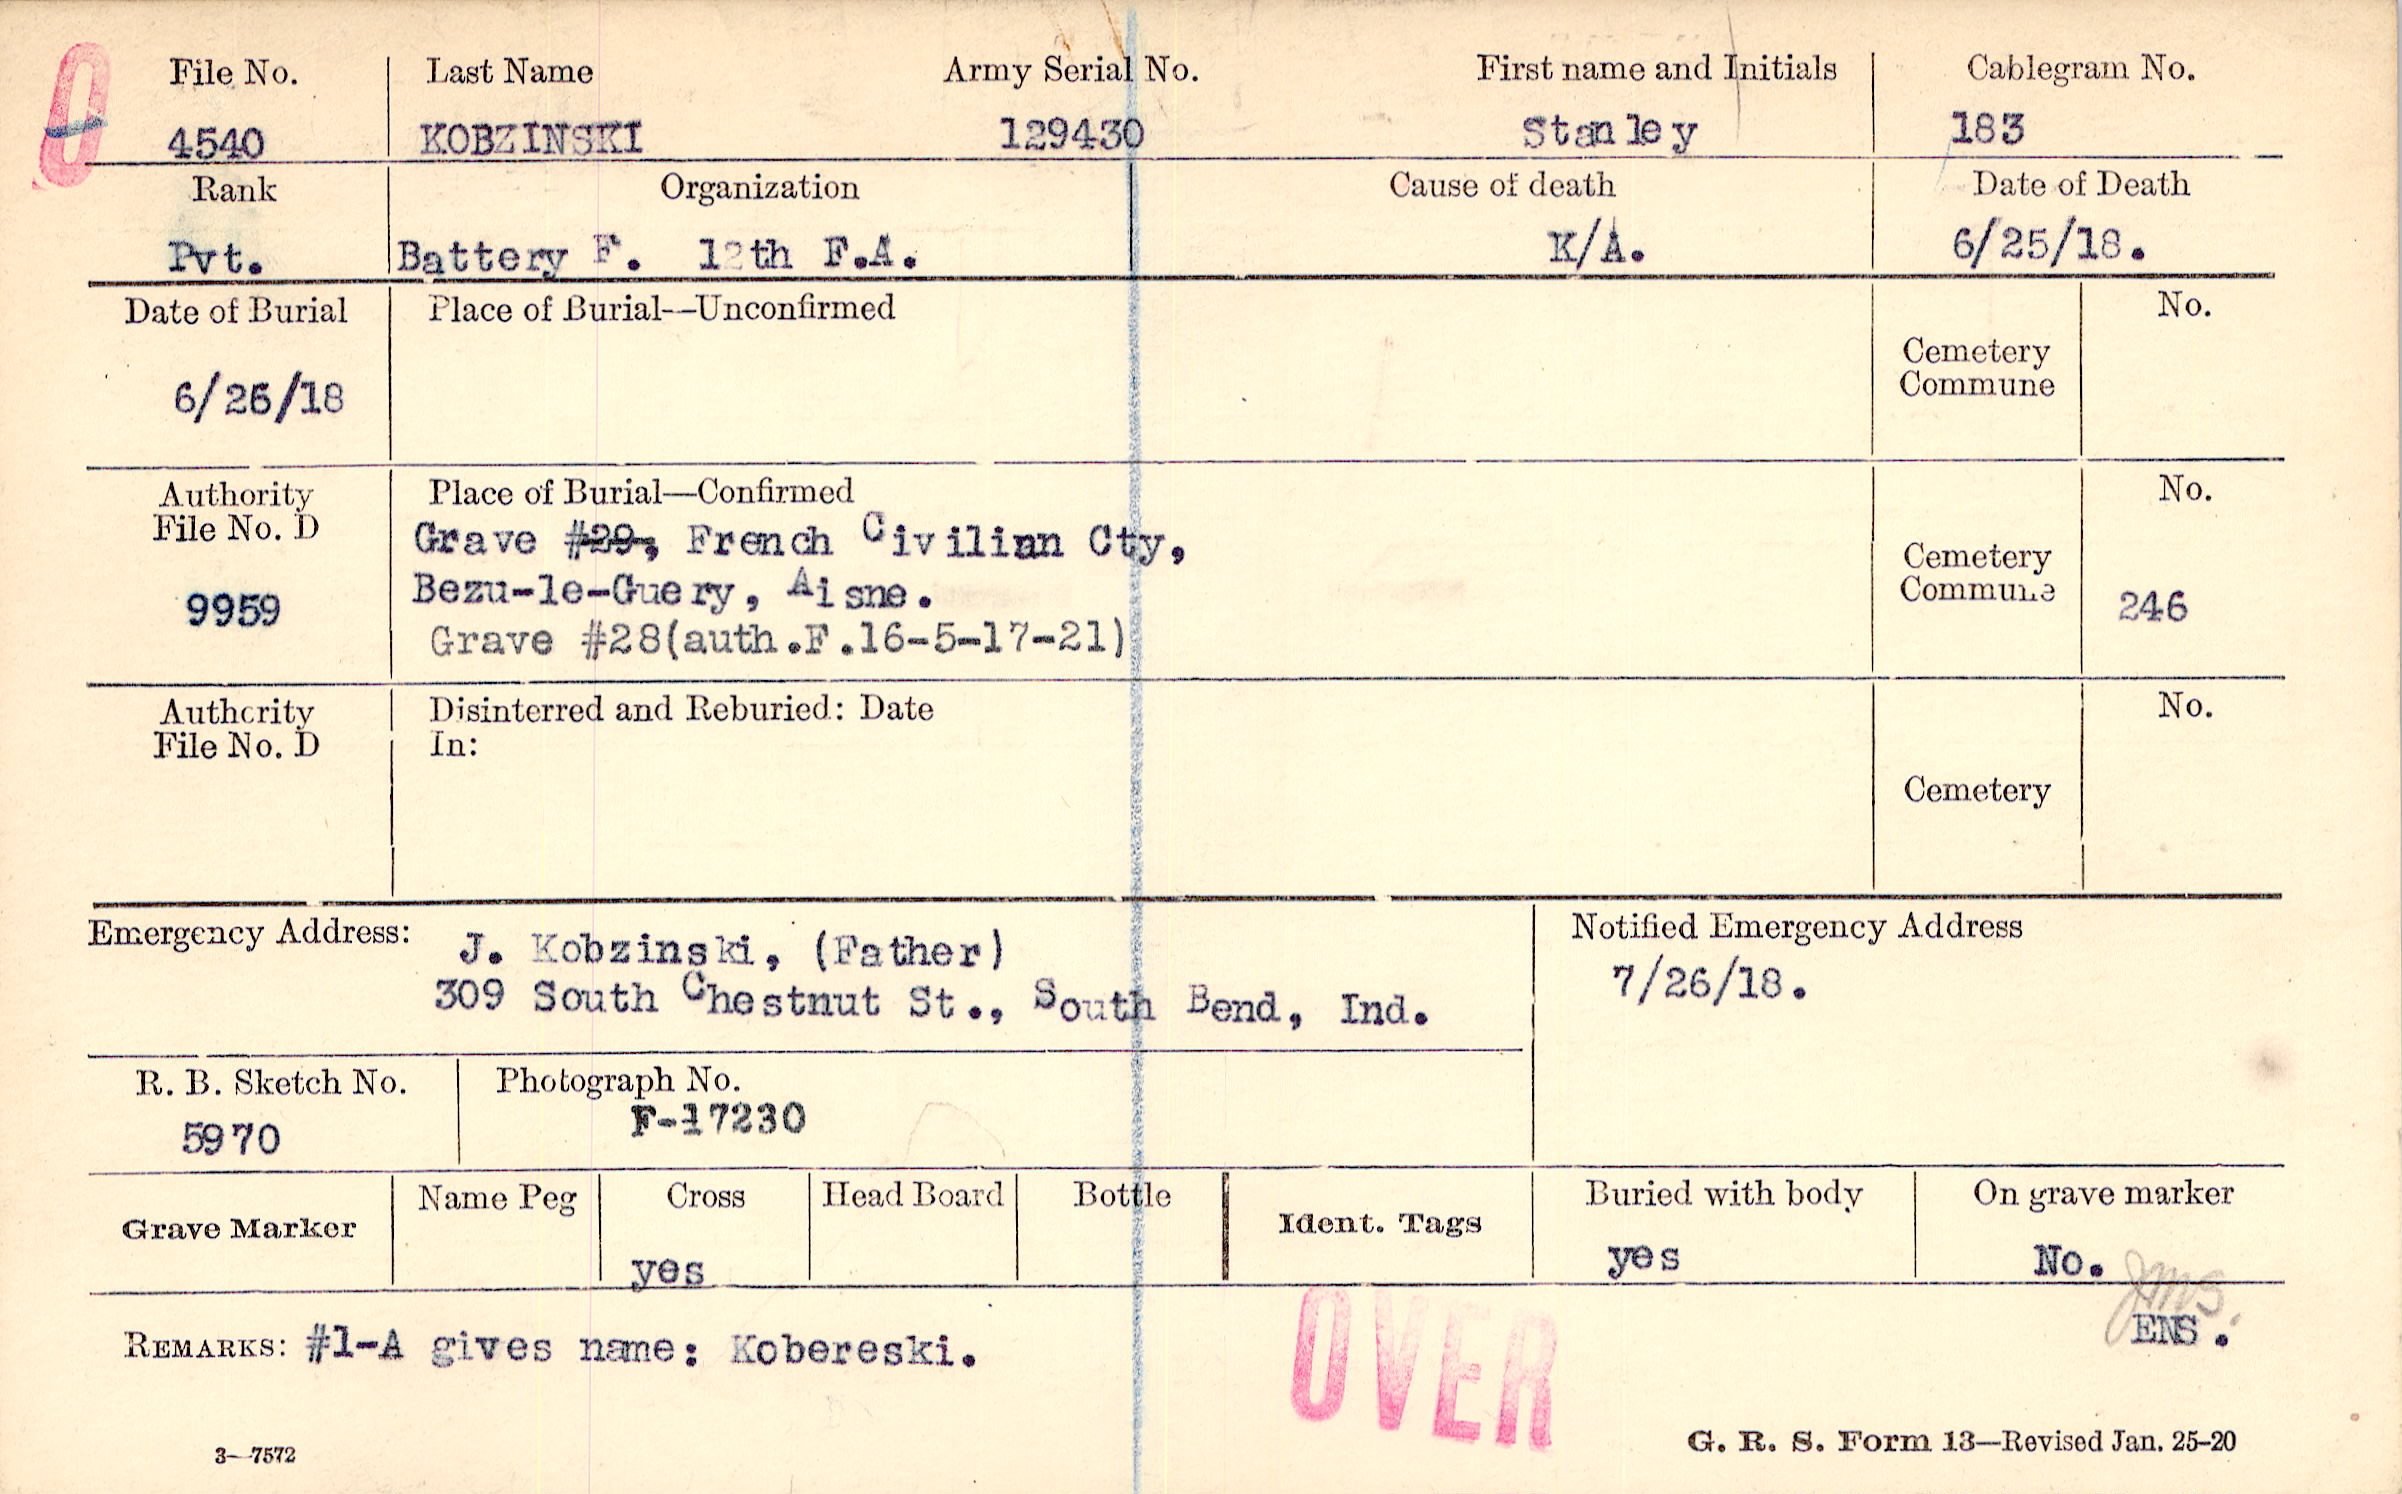 O
File No. Last Name Army Serial No. First name and Initials Cablegram No.
4540 KOBZINSKI 129430 Stanley 183
Rank Organization Cause of death Date of Death
Pvt. Battery F. 12th F.A. K/A. 6/25/18.
Date of Burial Place of Burial--Unconfirmed No.
Cemetery
Commune
6/26/18
Authority Place of Burial—Confirmed No.
File No. D
Grave #29, French Civilian Cty,
Cemetery
Bezu-le-Guery, Aisne.
Commune
9959 246
Grave #28(auth.F.16-5-17-21)
Authority Disinterred and Reburied: Date No.
File No. D In:
Cemetery
Emergency Address: J. Kobzinski, (Father) Notified Emergency Address
309 South Chestnut St., South Bend, Ind. 7/26/18.
R. B. Sketch No. Photograph No.
5970 F-17230
Grave Marker Name Peg Cross Head Board Bottle Ident. Tags Buried with body On grave marker
yes yes No.
JMS.
ENS.
REMARKS: #1-A gives name: Kobereski.
OVER
3—7572 G. R. S. Form 13—Revised Jan. 25-20